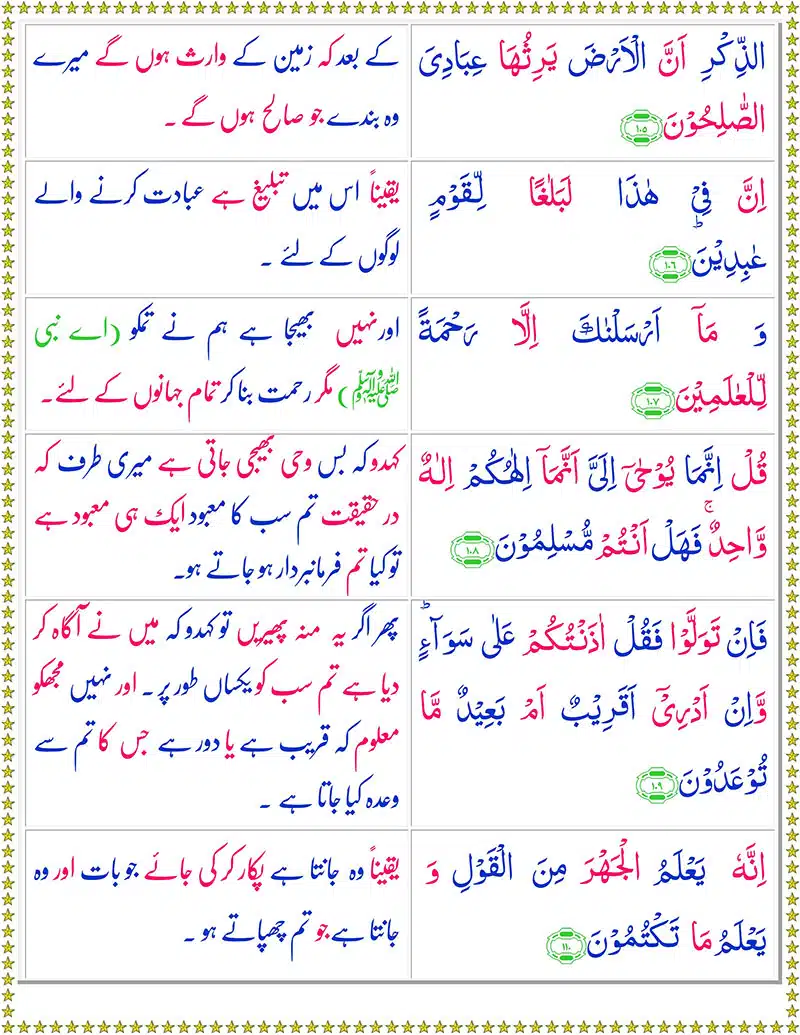 الذِّكْرِ اَنَّ الْاَرْضَ يَرِثُهَا عِبَادِىَ
الصّٰلِحُوْنَ ۱۰۵
کے بعد کہ زمین کے وارث ہوں گے میرے
وہ بندے جو صالح ہوں گے ۔
اِنَّ فِىْ هٰذَا لَبَلٰغًا لِّقَوْمٍ
عٰبِدِيْنَؕ ۱۰۶
یقیناً اس میں تبلیغ ہے عبادت کرنے والے
لوگوں کے لئے ۔
وَ مَاۤ اَرْسَلْنٰكَ اِلَّا رَحْمَةً
لِّلْعٰلَمِيْنَ ۱۰۷
اورنہیں بھیجا ہے ہم نے تمکو (اے نبی
ﷺ) مگر رحمت بناکر تمام جہانوں کے لئے۔
قُلْ اِنَّمَا يُوْحٰٓى اِلَىَّ اَنَّمَاۤ اِلٰهُكُمْ اِلٰهٌ
وَّاحِدٌۚ فَهَلْ اَنْتُمْ مُّسْلِمُوْنَ ۱۰۸
کہدو کہ بس وحی بھیجی جاتی ہے میری طرف کہ
در حقیقت تم سب کا معبود ایک ہی معبود ہے
تو کیا تم فرمانبردار ہو جاتے ہو۔
فَاِنْ تَوَلَّوْا فَقُلْ اٰذَنْتُكُمْ عَلٰى سَوَآءٍؕ
وَّاِنْ اَدْرِىْۤ اَقَرِيْبٌ اَمْ بَعِيْدٌ مَّا
تُوْعَدُوْنَ ۱۰۹
پھر اگر یہ منہ پھیریں تو کہدو کہ میں نے آگاہ کر
دیا ہے تم سب کو یکساں طور پر ۔ اور نہیں مجھکو
معلوم کہ قریب ہے یا دور ہے جس کا تم سے
وعدہ کیا جاتا ہے ۔
اِنَّهٗ يَعْلَمُ الْجَهْرَ مِنَ الْقَوْلِ وَ
يَعْلَمُ مَا تَكْتُمُوْنَ ۱۱۰
یقیناً وہ جانتا ہے پکار کر کی جائے جو بات اور وہ
جانتا ہے جو تم چھپاتے ہو ۔